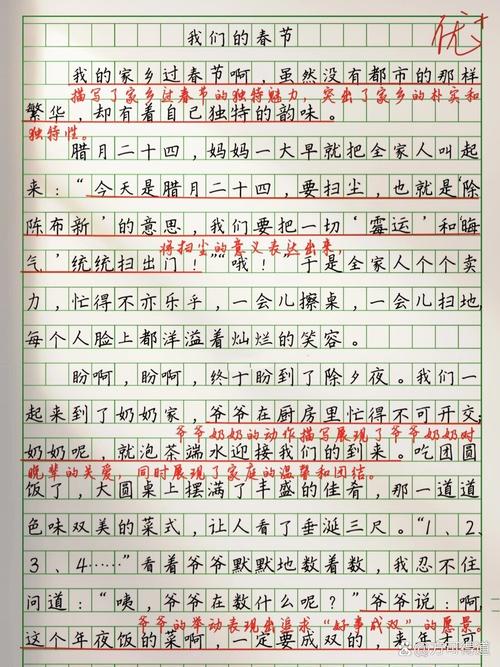 我们的春节
优+
我的家乡过春节啊，虽然没有都市的那样
描写了家乡过春节的独特魅力，突出了家乡的朴实和
繁华，却有着自己独特的韵味。
独特性。
腊月二十四，妈妈一大早就把全家人叫起
来：“今天是腊月二十四，要扫尘，也就是‘除
陈布新’的意思，我们要把一切‘霉运’和‘晦
将扫尘的意义表达出来，
气’统统扫出门！”“哦！”于是全家人个个卖
力，忙得不亦乐乎，一会儿擦桌，一会儿扫地，
每个人脸上都洋溢着灿烂的笑容。
盼啊，盼啊，终于盼到了除夕夜。我们一
起来到了奶奶家，爷爷在厨房里忙得不可开交；
爷爷奶奶的动作描写展现了爷爷奶奶对
奶奶呢，就泡茶端水迎接我们的到来。吃团圆
晚辈的关爱，同时展现了家庭的温馨和团结。
饭了，大圆桌上摆满了丰盛的佳肴，那一道道
色味双美的菜式，让人看了垂涎三尺。“1、2、
3、4……”看着爷爷默默地数着数，我忍不住
问道：“咦，爷爷在数什么呢？”爷爷说：啊，
爷爷的举动表现出追求“好事成双”的愿景。
这个年夜饭的菜啊，一定要成双的，来年才可